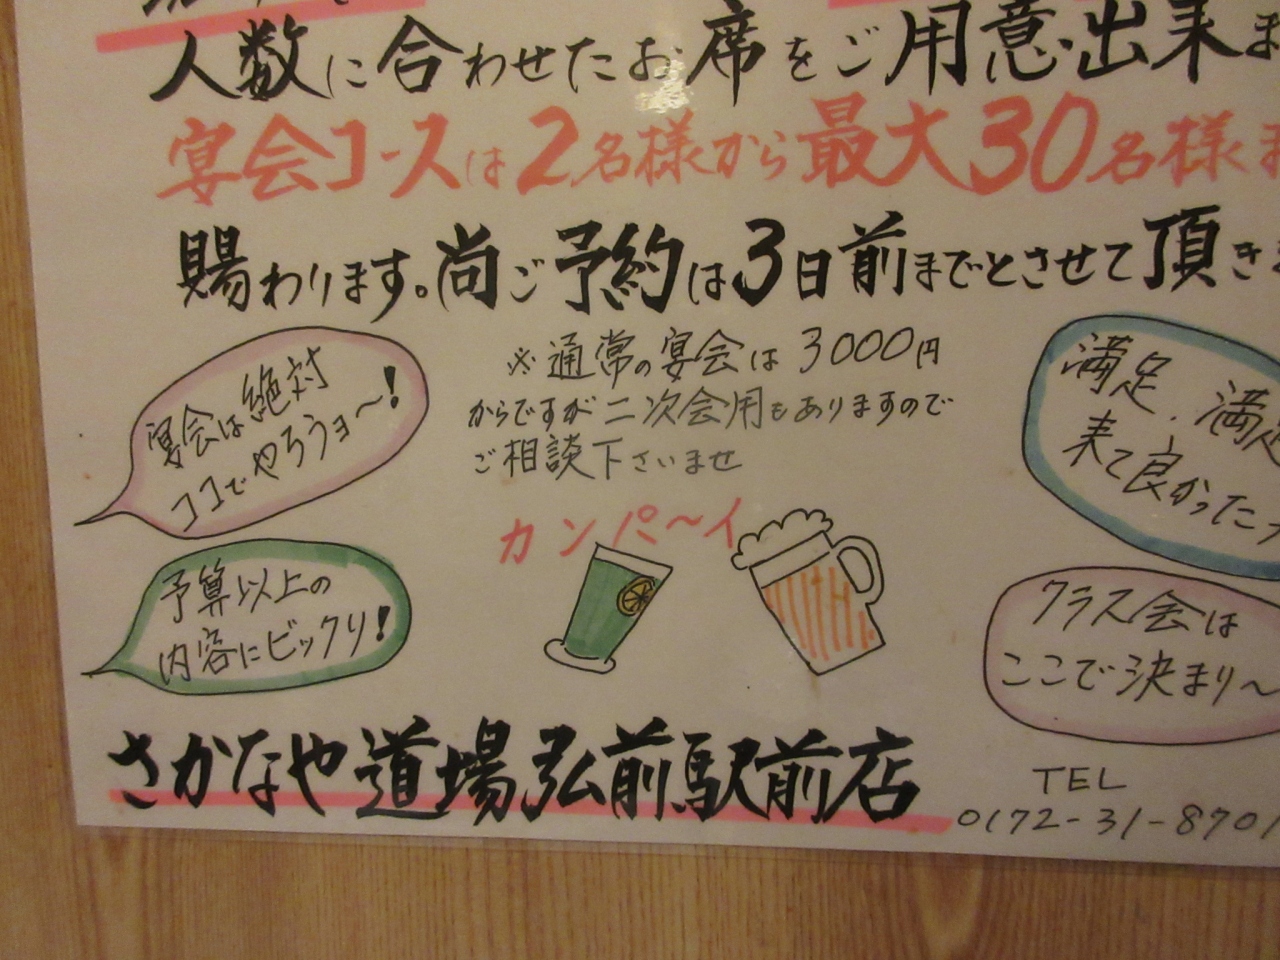 人数に合わせたお席をご用意出来ま
宴会コースは2名様から最大30名様ま
賜わります。尚ご予約は3日前までとさせて頂きま
※通常の宴会は3000円
からですが二次会用もありますので
ご相談下さいませ
宴会は絶対
ココでやろうョ〜!
満足、満足
来て良かった
カンパ〜イ
予算以上の
内容にビックリ!
クラス会は
ここで決まり〜
さかなや道場弘前駅前店
TEL
0172-31-8701